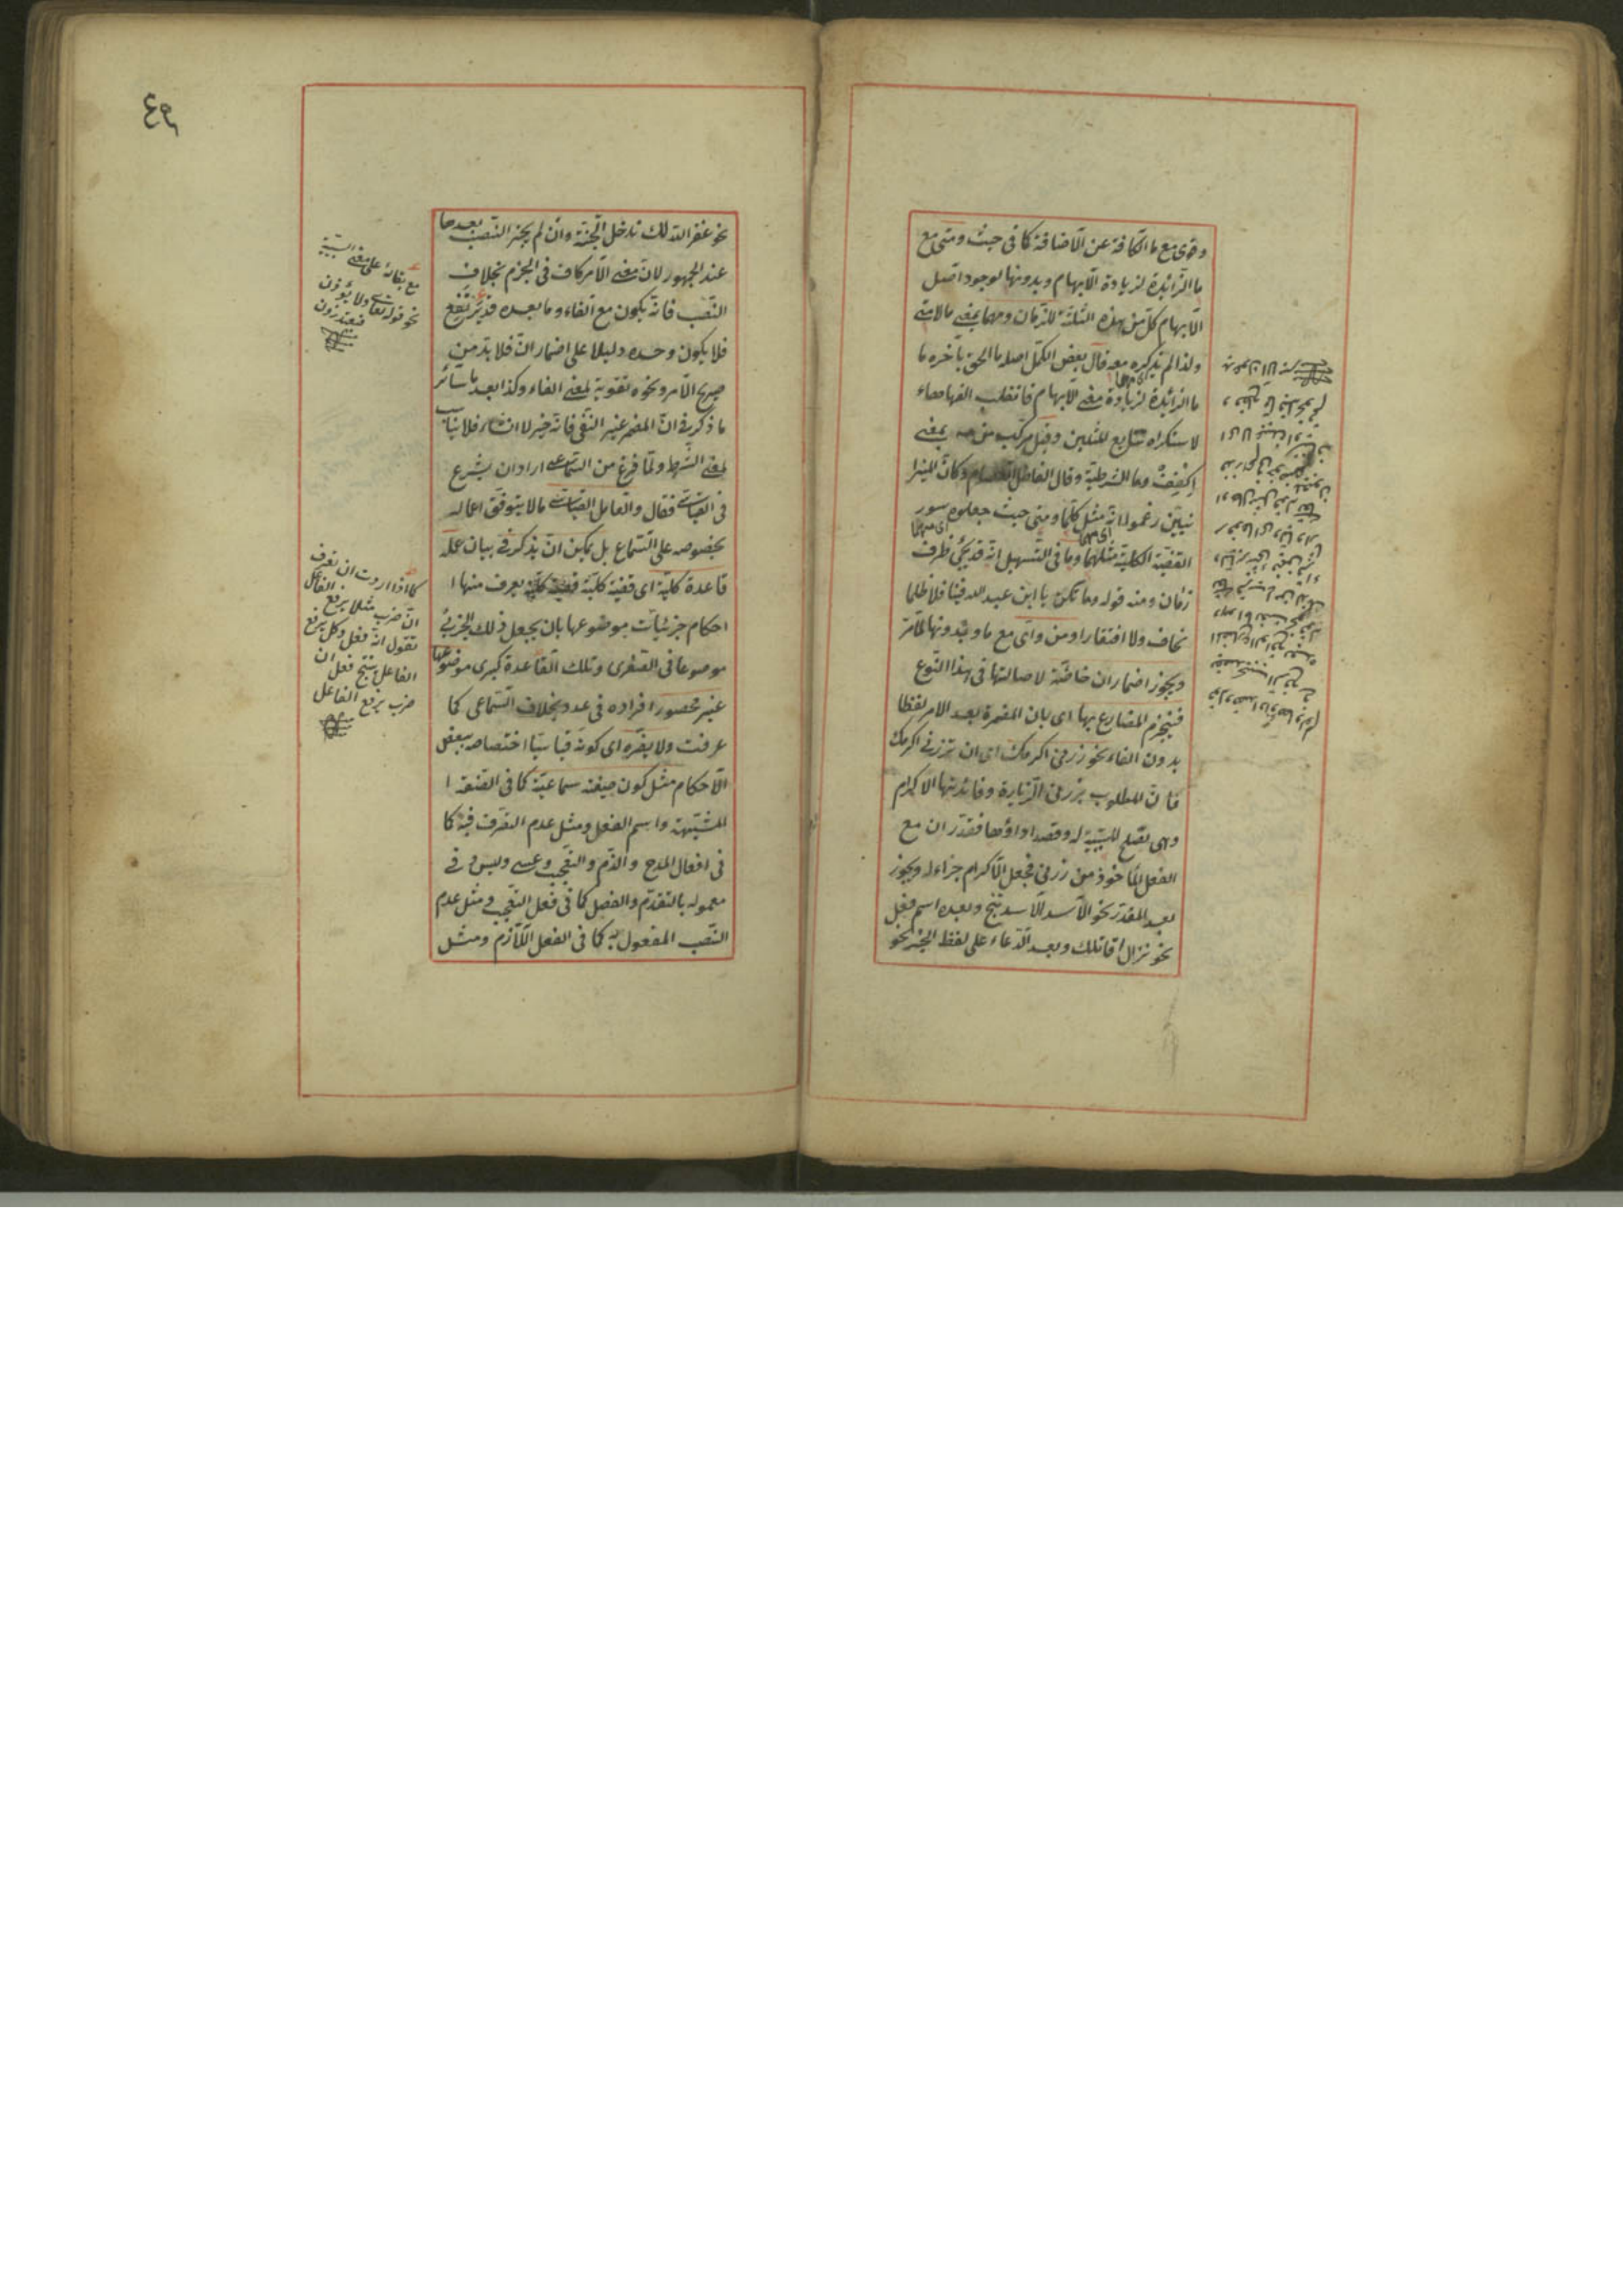 وهي مع ما الكافة عن الاضافة كما في حيث ومتى مع
ما الزائدة لزيادة الابهام وبدونها لوجود اصل
الابهام كل من هذه الثلثة للزمان ومهما بمعنى ما لا متى
ولذا لم يذكره معه قال بعض الكمل اصله ما الحق بآخره ما
ما الزائدة لزيادة معنى الابهام فانقلب الفها هاء
لاستكراه تتابع المثلين وقيل مركب من مه بمعنى
اكفف وما الشرطية وقال الفاضل العصام وكان الميزا
نيين زعموا انه مثل كلما ومتى حيث جعلوه سور
القضية الكلية مثلهما وما في التسهيل انه قد يجئ ظرف
زمان ومنه قوله وما تكن يا ابن عبد الله فينا فلا ظلما
نخاف ولا افتقارا ومن واي مع ما وبدونها لما مر
ويجوز اضمار ان خاصة لاصالتها في هذا النوع
فينجزم المضارع بها اي بان المضمرة بعد الامر لفظا
بدون الفاء نحو زرني اكرمك اي ان تزرني اكرمك
فان المطلوب بزرني الزيارة وفائدتها الاكرام
وهي تصلح للسببية له وقصد اداؤها فقدر ان مع
الفعل المأخوذ من زرني فجعل الاكرام جزاء له ويجوز
بعد المقدر نحو الاسد الاسد تنج وبعده اسم فعل
نحو نزال اقاتلك وبعد الدعاء على لفظ الخبر نحو
٤٩
نحو غفر الله لك تدخل الجنة وان لم يجز النصب بعدها
عند الجمهور لان معنى الامر كاف في الجزم بخلاف
النصب فانه يكون مع الفاء وما بعده قد يرتفع
فلا يكون وحده دليلا على اضمار ان فلا بد من
صريح الامر ونحوه تقوية لمعنى الفاء وكذا بعد سائر
ما ذكر في ان المضمر غير النفي فانه خبر لا انشاء فلا يناسب
لمعنى الشرط ولما فرغ من السماعى اراد ان يشرع
في القياسى فقال والعامل القياسى ما لا يتوقف اعماله
بخصوصه على السماع بل يمكن ان يذكر في بيان عمله
قاعدة كلية اي قضية كلية يعرف منها ا
احكام جزئيات موضوعها بان يجعل ذلك الجزئي
موضوعا في الصغرى وتلك القاعدة كبرى موضوعها
غير محصور افراده في عدد بخلاف السماعى كما
عرفت ولا يضره اي كونه قياسيا اختصاصه ببعض
الاحكام مثل كون صيغته سماعية كما في الصفة ا
المشبهة واسم الفعل ومثل عدم التصرف فيه كما
في افعال المدح والذم والتعجب وعسى وليس وفي
معموله بالتقدم والفصل كما في فعل التعجب ومثل عدم
النصب المفعول به كما في الفعل اللازم ومثل
مع بقائه على معنى السببية
نحو قوله تعالى ولا يؤذن
فيعتذرون
كما اذا اردت ان تعرف
ان ضرب مثلا يرفع الفاعل
تقول انه فعل وكل يرفع
الفاعل ينتج فعل ان
ضرب يرفع الفاعل